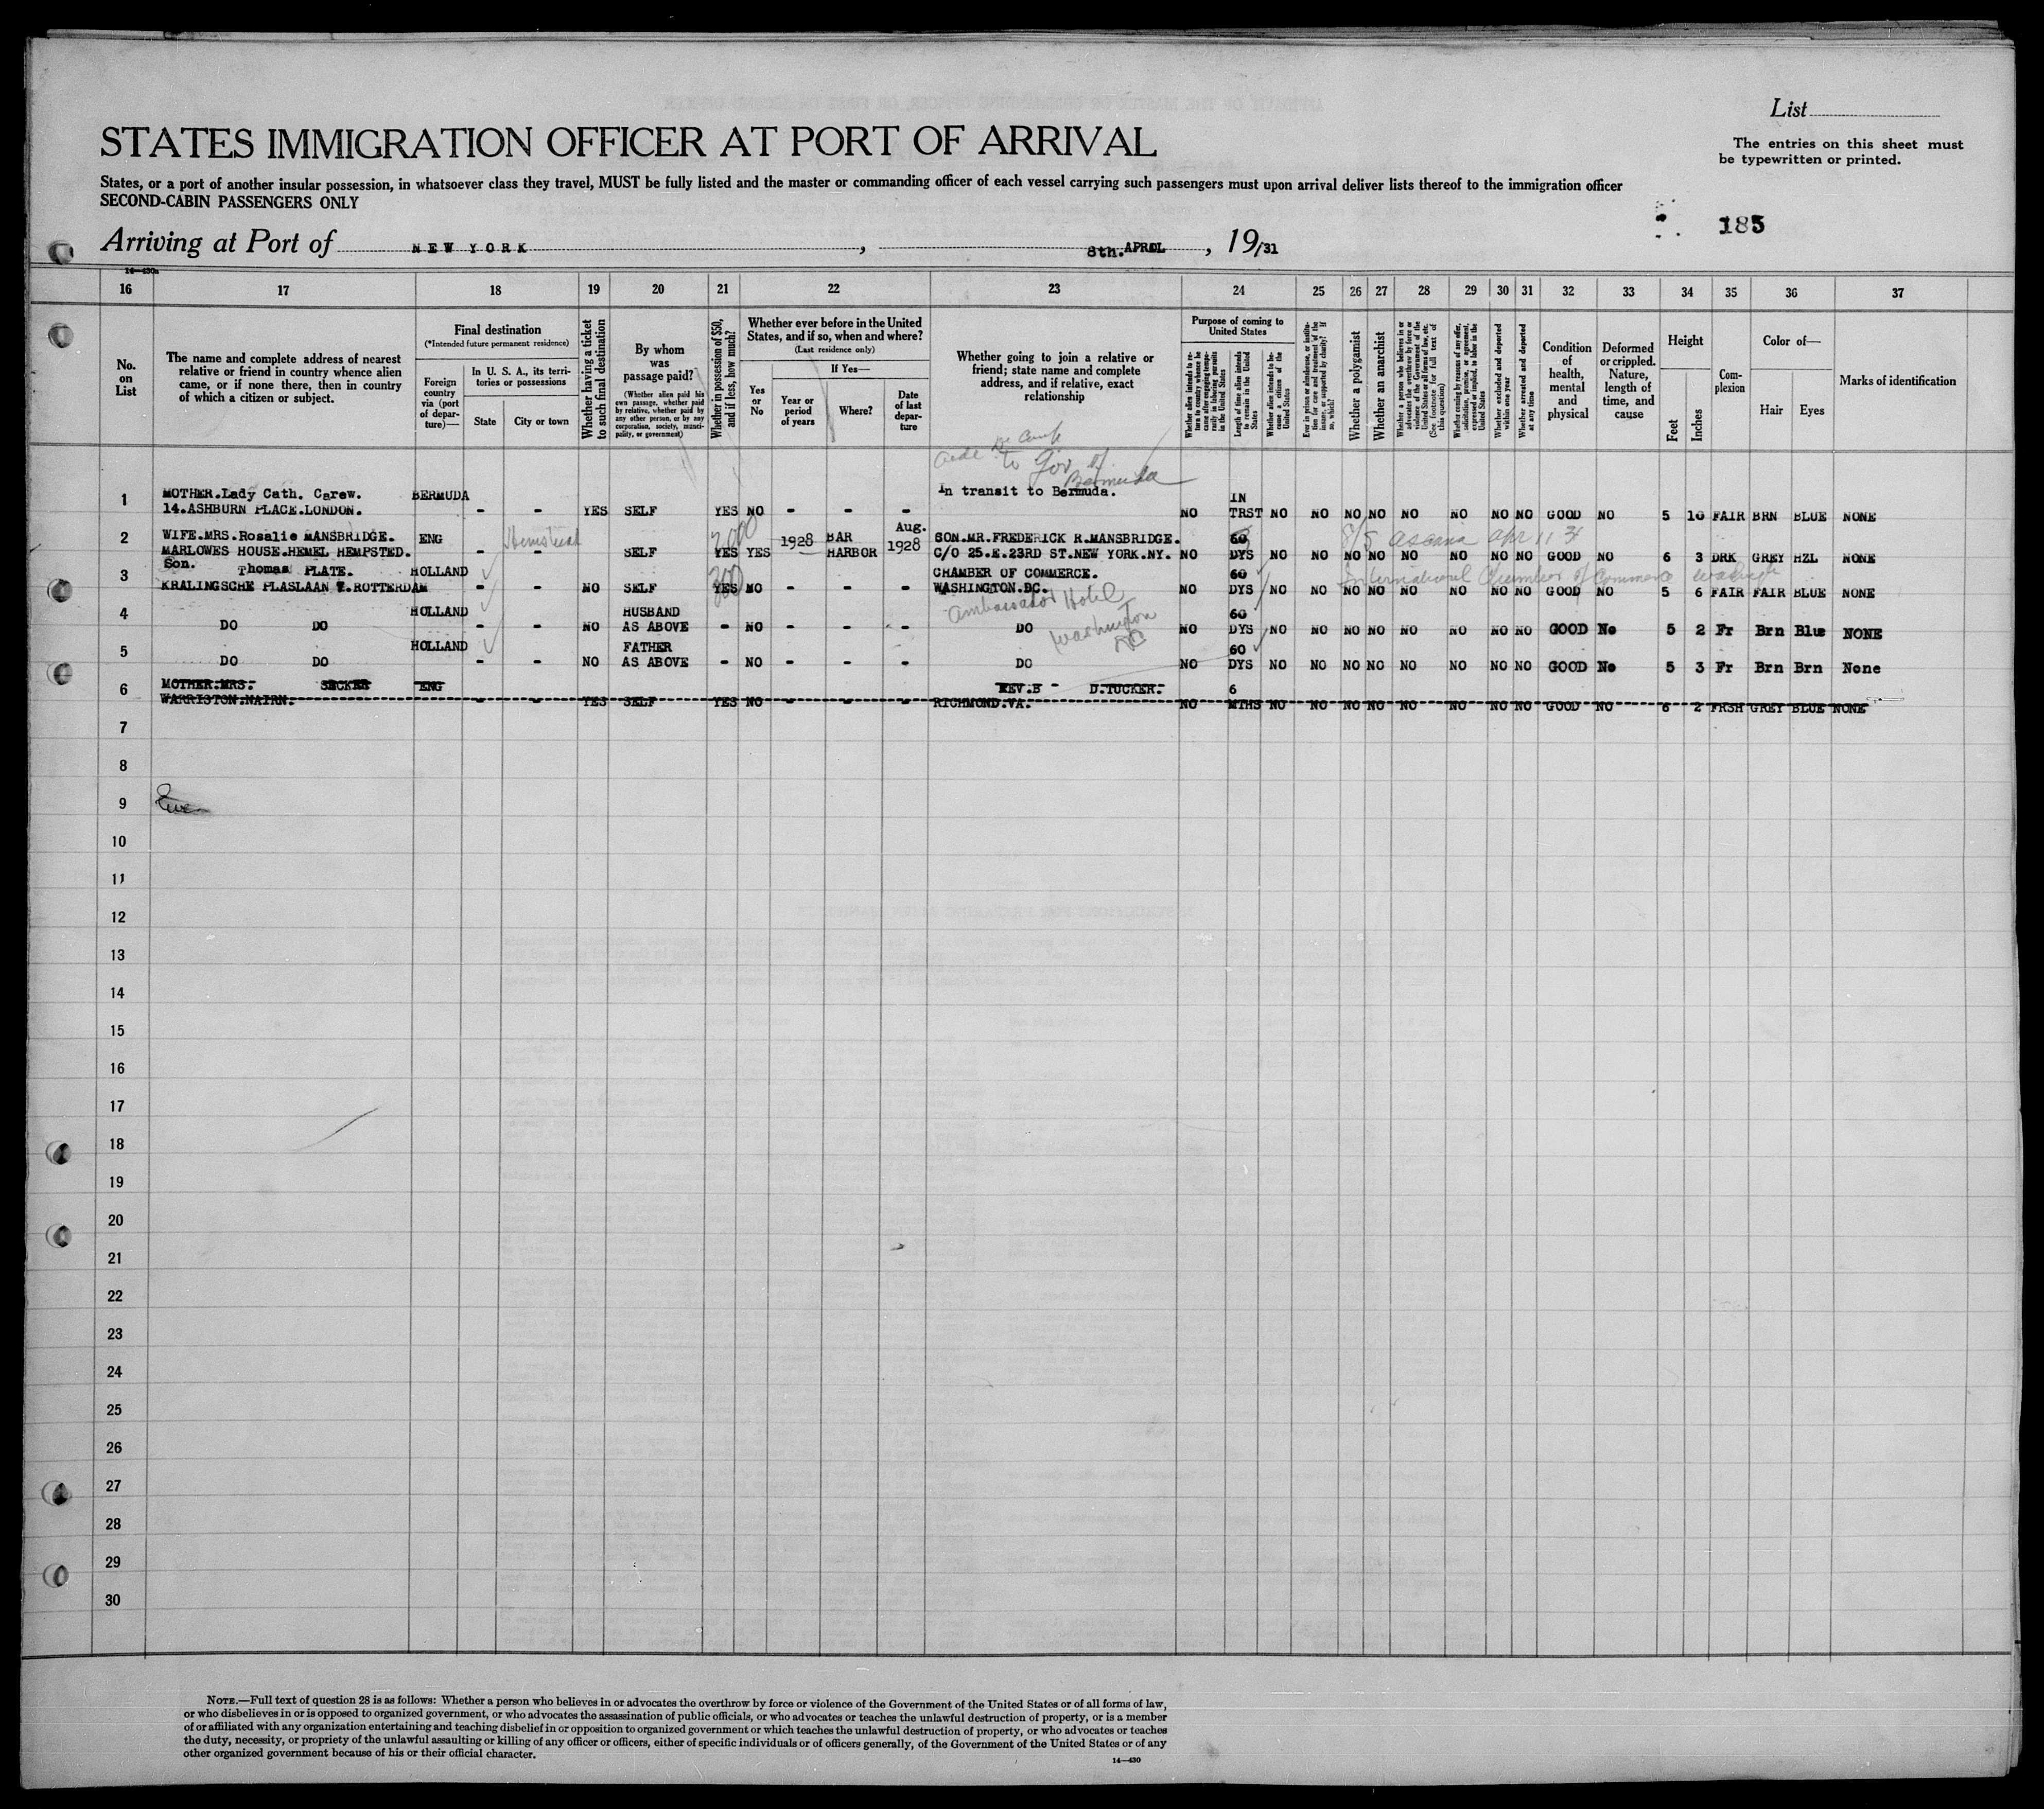 List
STATES IMMIGRATION OFFICER AT PORT OF ARRIVAL
The entries on this sheet must
be typewritten or printed.
States, or a port of another insular possession, in whatsoever class they travel, MUST be fully listed and the master or commanding officer of each vessel carrying such passengers must upon arrival deliver lists thereof to the immigration officer
SECOND-CABIN PASSENGERS ONLY
185
Arriving at Port of NEW YORK, 8th. APRIL, 19/31
14—430a
16 17 18 19 20 21 22 23 24 25 26 27 28 29 30 31 32 33 34 35 36 37
No. on List
The name and complete address of nearest relative or friend in country whence alien came, or if none there, then in country of which a citizen or subject.
Final destination
(*Intended future permanent residence)
Foreign country via (port of departure)—
In U. S. A., its territories or possessions
State
City or town
Whether having a ticket to such final destination
By whom was passage paid?
(Whether alien paid his own passage, whether paid by relative, whether paid by any other person, or by any corporation, society, municipality, or government)
Whether in possession of $50, and if less, how much?
Whether ever before in the United States, and if so, when and where?
(Last residence only)
Yes or No
If Yes—
Year or period of years
Where?
Date of last departure
Whether going to join a relative or friend; state name and complete address, and if relative, exact relationship
Purpose of coming to United States
Whether alien intends to return to country whence he came after engaging temporarily in laboring pursuits in the United States
Length of time alien intends to remain in the United States
Whether alien intends to become a citizen of the United States
Ever in prison or almshouse, or institution for care and treatment of the insane, or supported by charity? If so, which?
Whether a polygamist
Whether an anarchist
Whether a person who believes in or advocates the overthrow by force or violence of the Government of the United States or all forms of law, etc. (See footnote for full text of this question)
Whether coming by reasons of any offer, solicitation, promise, or agreement, expressed or implied, to labor in the United States
Whether excluded and deported within one year
Whether arrested and deported at any time
Condition of health, mental and physical
Deformed or crippled. Nature, length of time, and cause
Height
Feet
Inches
Complexion
Color of—
Hair
Eyes
Marks of identification
Aide De Camp
to Gov of
Bermuda
1 MOTHER.Lady Cath. Carew. BERMUDA In transit to Bermuda. IN
14.ASHBURN PLACE.LONDON. - - YES SELF YES NO - - - NO TRST NO NO NO NO NO NO NO NO GOOD NO 5 10 FAIR BRN BLUE NONE
2 WIFE.MRS.Rosalie MANSBRIDGE. ENG Hemstead 1928 BAR Aug. SON.MR.FREDERICK R.MANSBRIDGE. 60 S/S Ascania Apr 11 31
MARLOWES HOUSE.HEMEL HEMPSTED. - - SELF YES YES HARBOR 1928 C/O 25.E.23RD ST.NEW YORK.NY. NO DYS NO NO NO NO NO NO NO NO GOOD NO 6 3 DRK GREY HZL NONE
3 Son. Thomas PLATE. HOLLAND 300 CHAMBER OF COMMERCE. 60 International Chamber of Commerce
KRALINGSCHE PLASLAAN ROTTERDAM - - NO SELF YES NO - - - WASHINGTON.DC. NO DYS NO NO NO NO NO NO NO NO GOOD NO 5 6 FAIR FAIR BLUE NONE
Ambassador Hotel
Washington
DC
4 HOLLAND HUSBAND 60
DO DO - - NO AS ABOVE - NO - - - DO NO DYS NO NO NO NO NO NO NO NO GOOD No 5 2 Fr Brn Blue NONE
5 HOLLAND FATHER 60
DO DO - - NO AS ABOVE - NO - - - DO NO DYS NO NO NO NO NO NO NO NO GOOD No 5 3 Fr Brn Brn None
6 MOTHER.MRS. SECKER ENG REV.B D.TUCKER. 6
WARRISTON.NAIRN. - - YES SELF YES NO - - - RICHMOND.VA. NO MTHS NO NO NO NO NO NO NO NO GOOD NO 6 2 FRSH GREY BLUE NONE
7
8
9
10
11
12
13
14
15
16
17
18
19
20
21
22
23
24
25
26
27
28
29
30
NOTE.—Full text of question 28 is as follows: Whether a person who believes in or advocates the overthrow by force or violence of the Government of the United States or of all forms of law,
or who disbelieves in or is opposed to organized government, or who advocates the assassination of public officials, or who advocates or teaches the unlawful destruction of property, or is a member
of or affiliated with any organization entertaining and teaching disbelief in or opposition to organized government or which teaches the unlawful destruction of property, or who advocates or teaches
the duty, necessity, or propriety of the unlawful assaulting or killing of any officer or officers, either of specific individuals or of officers generally, of the Government of the United States or of any
other organized government because of his or their official character.
14—430